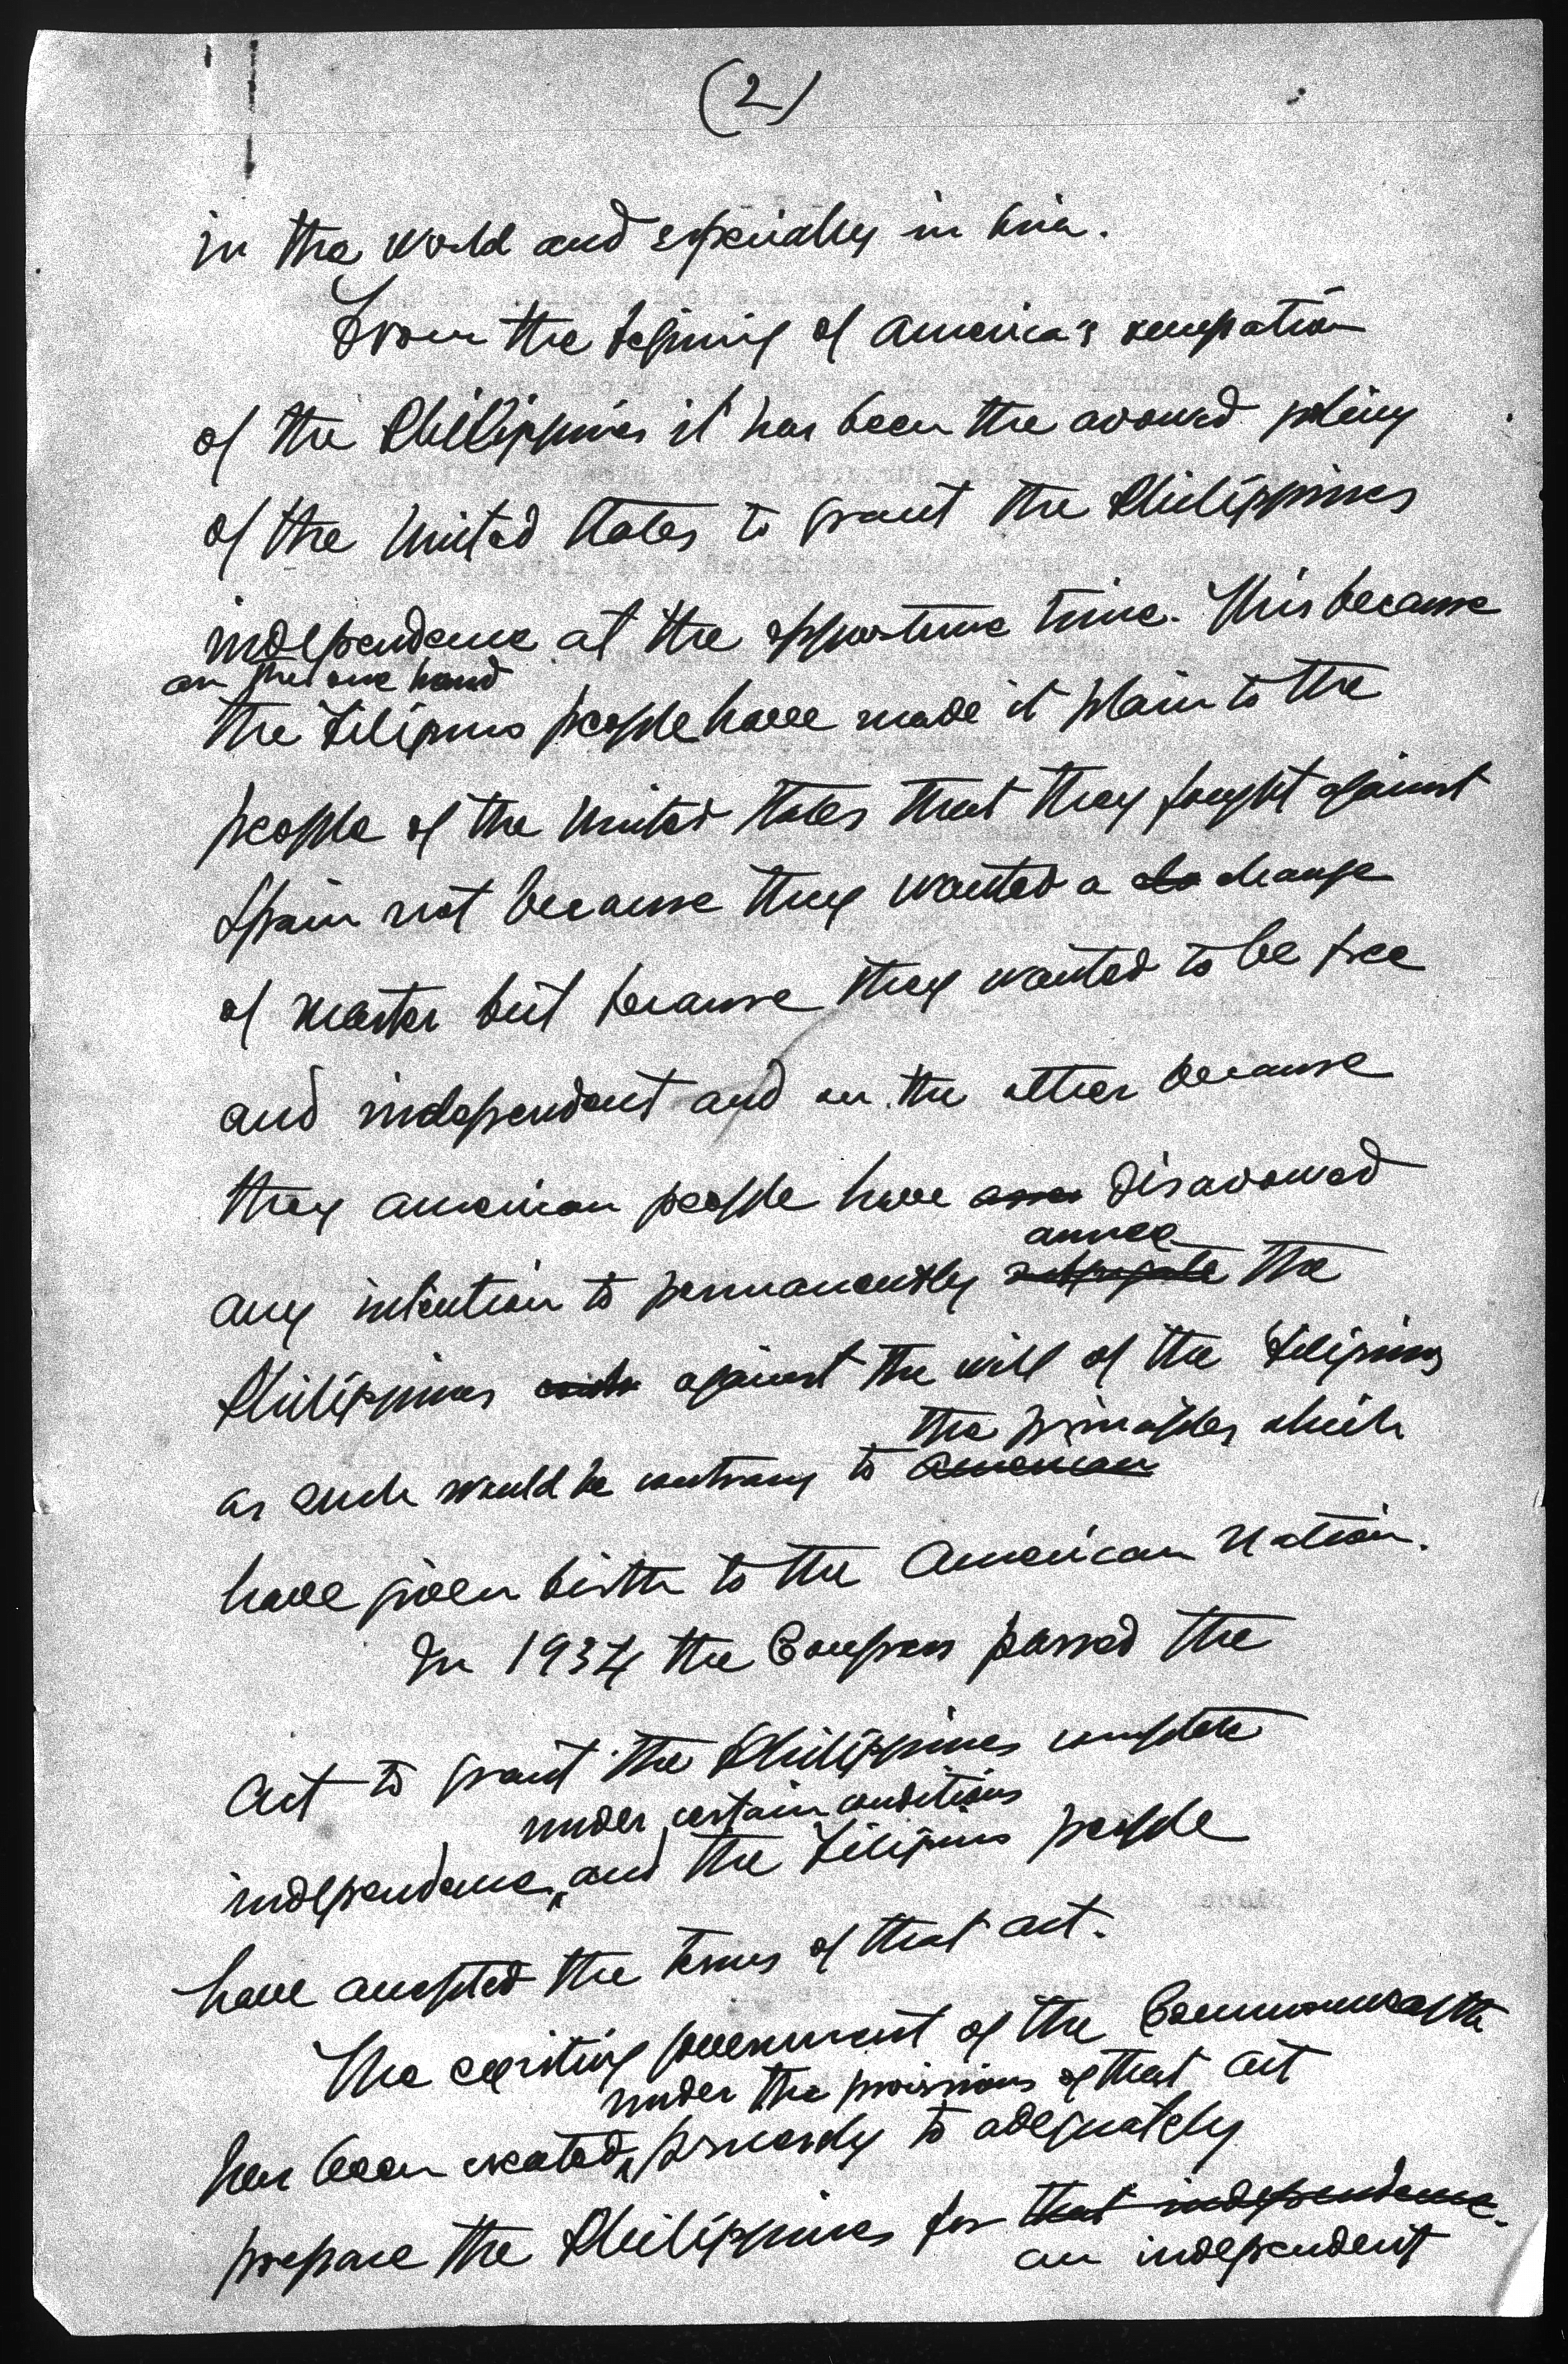 (2)
in the world and especially in Asia.
From the begining of America's occupation
of the Phillippines it has been the avowed policy
of the United States to grant the Philippines
independence at the opportune time. This because
on the one hand
the Filipino people have made it plain to the
people of the United States that they fought against
Spain not because they wanted a change
of master but because they wanted to be free
and independent and on the other because
they American people have disavowed
annex
any intention to permanently subjugate the
Philippines against the will of the Filipinos
the principles which
as such would be contrary to American
have given birth to the American Nation.
In 1934 the Congress passed the
Act to grant the Philippines complete
under certain conditions
independence, and the Filipino people
have accepted the terms of that act.
The existing government of the Commonwealth
under the provisions of that act
has been created precisely to adequately
prepare the Philippines for that independence.
an independent